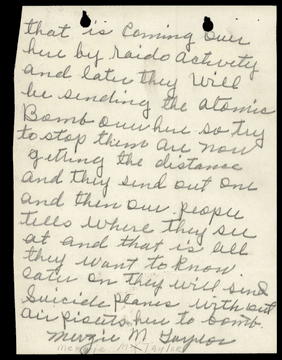 that is coming over
here by raido activity
and later they will
be sending the atomic
Bomb over here so try
to stop them are now
getting the distance
and they send out one
and then our people
tells where they see
at and that is all
they want to know.
later on they will send
Suicide planes with out
air pisuts here to bomb.
Merzie M Taylor
Merzie M. Taylor